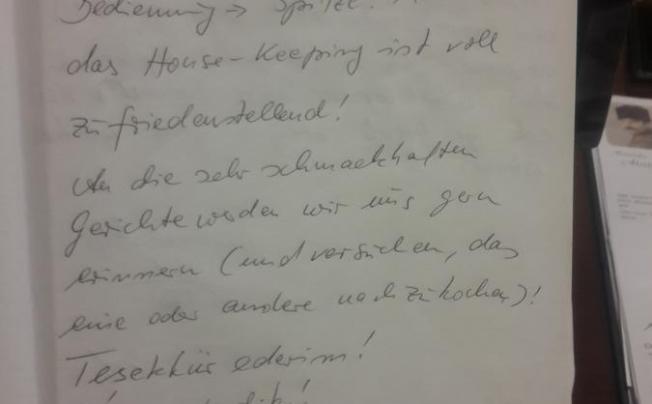 Bedienung → Spitze!
das House-Keeping ist voll
zufriedenstellend!
An die sehr schmackhaften
Gerichte werden wir uns gern
erinnern (und versuchen, das
eine oder andere nachzukochen)!
Tesekkür ederim!